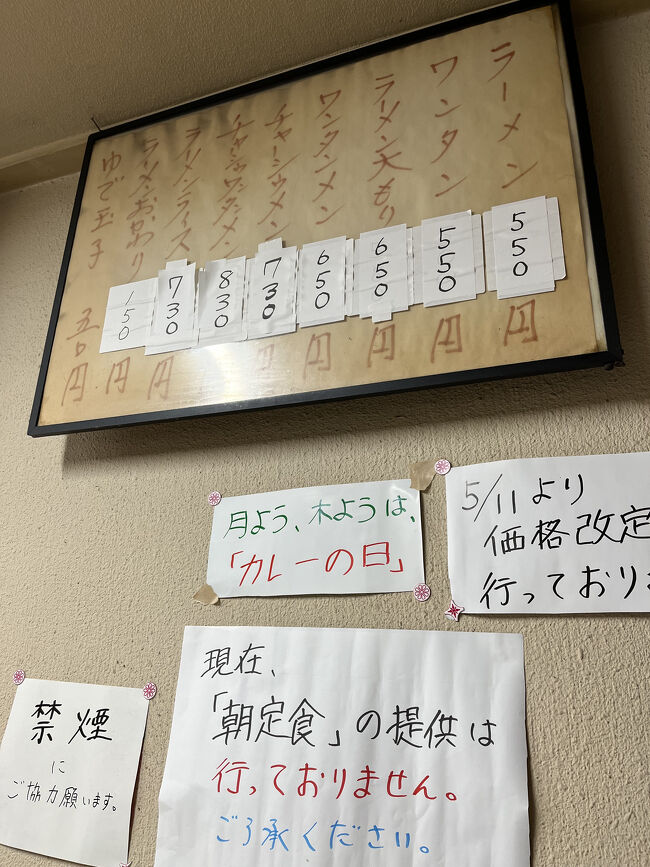 ラーメン 550円
ワンタン 550円
ラーメン大もり 650円
ワンタンメン 650円
チャーシュウメン 730円
チャーシュウワンタンメン 830
ラーメンライス 730円
ラーメンおかわり 150円
ゆで玉子 五〇円
月よう、木ようは、
「カレーの日」
5/11より
価格改定
行っており
現在、
「朝定食」の提供は
行っておりません。
ご了承ください。
禁煙
に
ご協力願います。